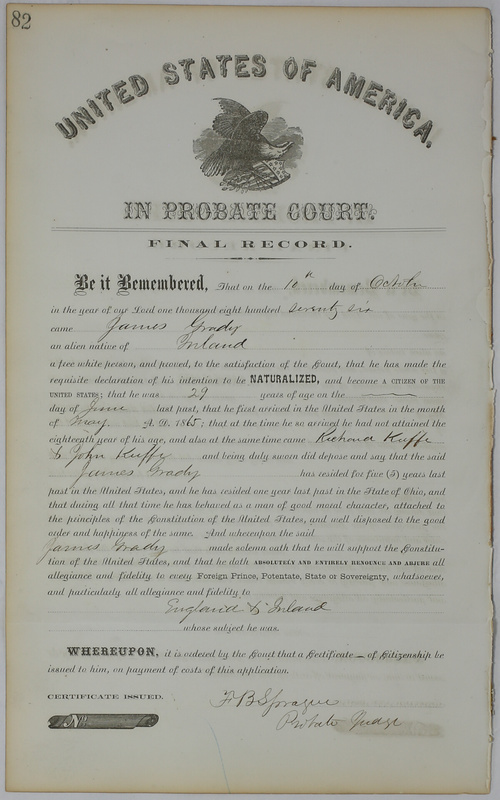 82
UNITED STATES OF AMERICA.
IN PROBATE COURT.
FINAL RECORD.
Be it Remembered, That on the 10th day of October
in the year of our Lord one thousand eight hundred seventy six
came James Grady
an alien native of Ireland
a free white person, and proved, to the satisfaction of the Court, that he has made the
requisite declaration of his intention to be NATURALIZED, and become A CITIZEN OF THE
UNITED STATES; that he was 29 years of age on the
day of June last past, that he first arrived in the United States in the month
of May A. D. 1865; that at the time he so arrived he had not attained the
eighteenth year of his age, and also at the same time came Richard Kuffe
& John Kuffe and being duly sworn did depose and say that the said
James Grady has resided for five (5) years last
past in the United States, and he has resided one year last past in the State of Ohio, and
that during all that time he has behaved as a man of good moral character, attached to
the principles of the Constitution of the United States, and well disposed to the good
order and happiness of the same. And whereupon the said
James Grady made solemn oath that he will support the Constitu-
tion of the United States, and that he doth ABSOLUTELY AND ENTIRELY RENOUNCE AND ABJURE all
allegiance and fidelity to every Foreign Prince, Potentate, State or Sovereignty, whatsoever,
and particularly all allegiance and fidelity to
England & Ireland
whose subject he was.
WHEREUPON, it is ordered by the Court that a Certificate of Citizenship be
issued to him, on payment of costs of this application.
CERTIFICATE ISSUED.
F B Sprague
Probate Judge
No